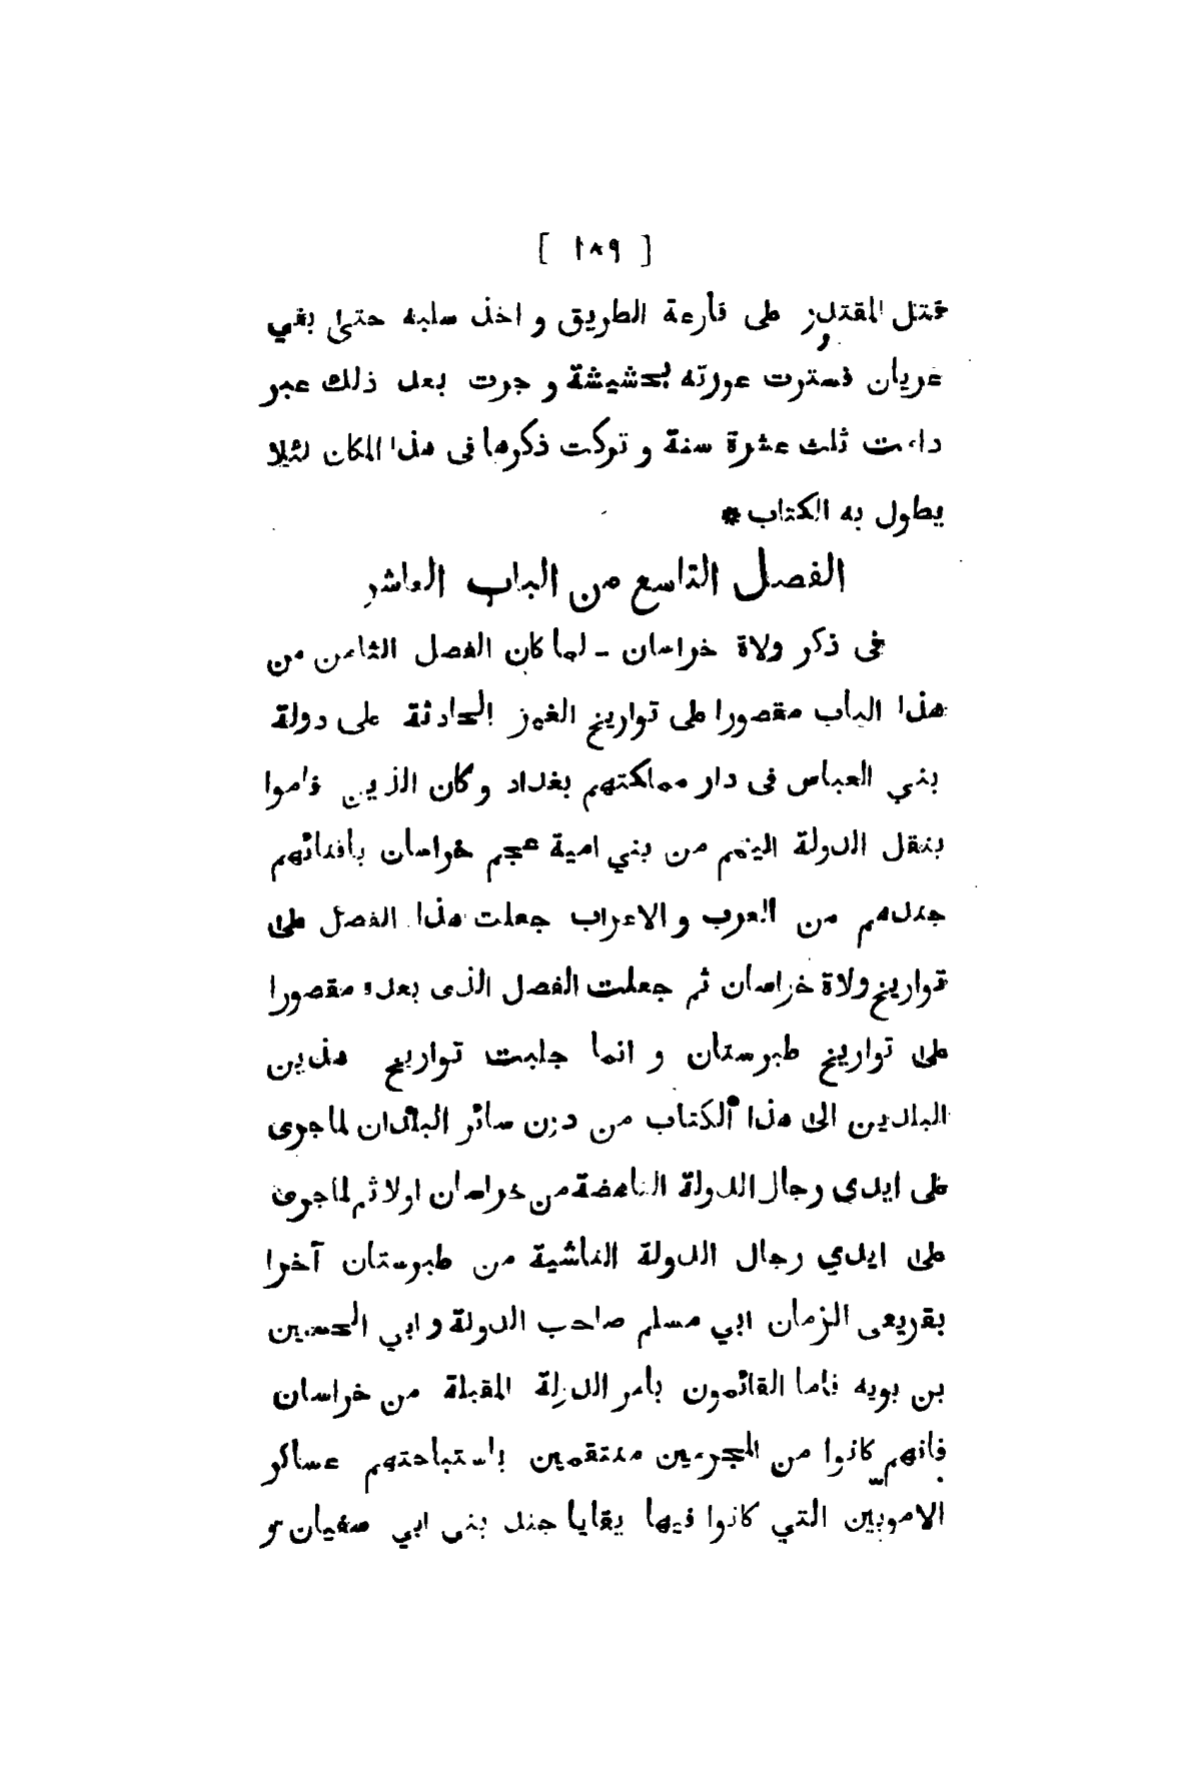 [ ١٨٩ ]
فقتل المقتدر على قارعة الطريق و اخذ سلبه حتى بقي
عريان فسترت عورته بحشيشة و جرت بعد ذلك عبر
دامت ثلث عشرة سنة و تركت ذكرها فى هذا المكان لئلا
يطول به الكتاب *
الفصل التاسع من الباب العاشر
فى ذكر ولاة خراسان - لما كان الفصل الثامن من
هذا الباب مقصورا على تواريخ الغير الحادثة على دولة
بني العباس فى دار مملكتهم بغداد و كان الذين قاموا
بنقل الدولة اليهم من بني امية عجم خراسان بافنائهم
جندهم من العرب و الاعراب جعلت هذا الفصل على
تواريخ ولاة خراسان ثم جعلت الفصل الذى بعده مقصورا
على تواريخ طبرستان و انما جلبت تواريخ هذين
البلدين الى هذا الكتاب من دون سائر البلدان لما جرى
على ايدى رجال الدولة الناهضة من خراسان اولا ثم لما جرى
على ايدي رجال الدولة الناشية من طبرستان آخرا
بقريعى الزمان ابي مسلم صاحب الدولة و ابي الحسين
بن بويه فاما القائمون بامر الدولة المقبلة من خراسان
فانهم كانوا من المجرمين منتقمين باستباحتهم عساكر
الامويين التي كانوا فيها بقايا جند بنى ابي سفيان و